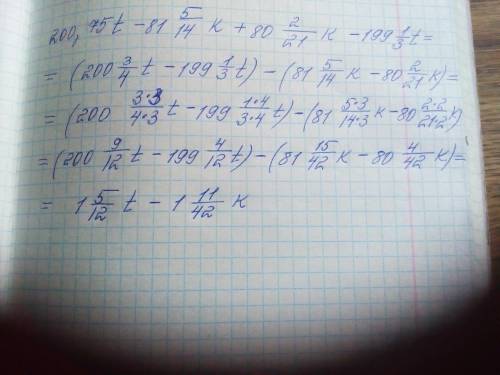 200,75t - 81 5/14 к + 80 2/21 к - 199 1/3 t =
= (200 3/4 t - 199 1/3 t) - (81 5/14 к - 80 2/21 к) =
= (200 3·3/4·3 t - 199 1·4/3·4 t) - (81 5·3/14·3 к - 80 2·2/21·2 к)
= (200 9/12 t - 199 4/12 t) - (81 15/42 к - 80 4/42 к) =
= 1 5/12 t - 1 11/42 к